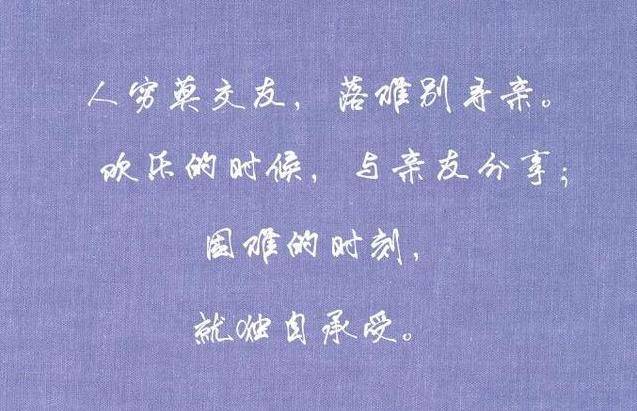 人穷莫交友，落难别寻亲。
欢乐的时候，与亲友分享；
困难的时刻，
就独自承受。